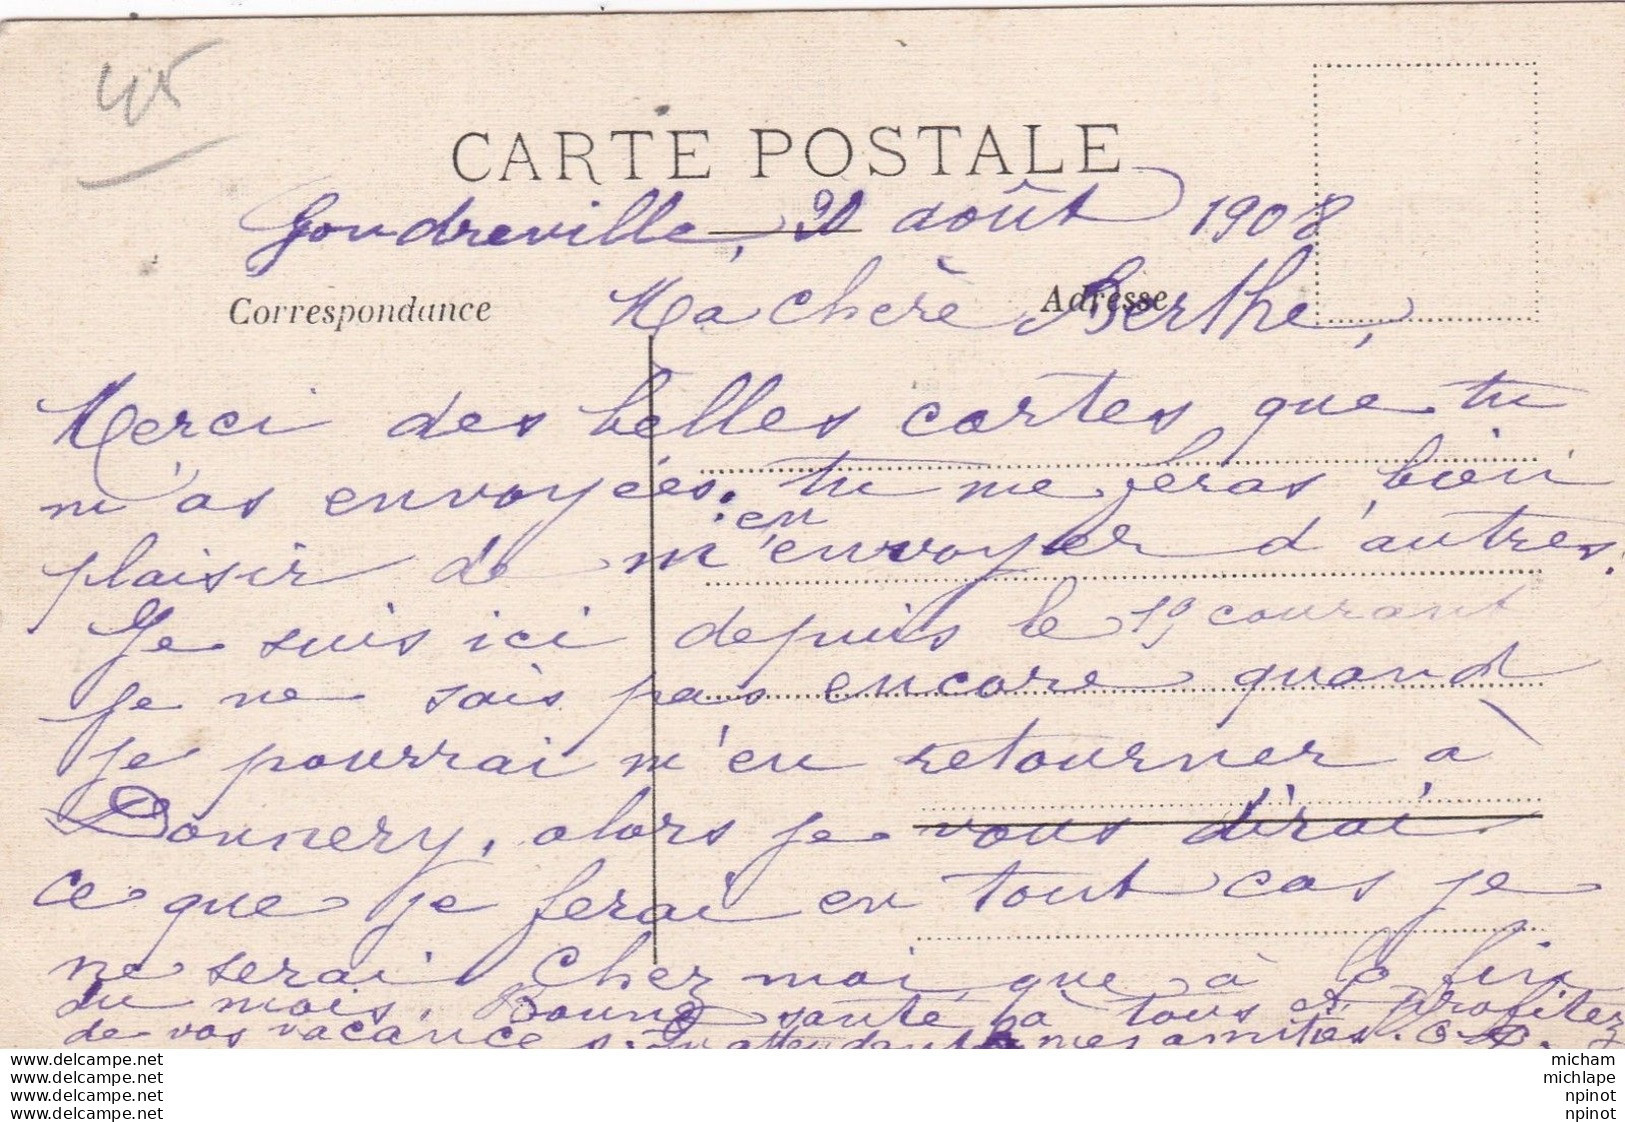 45
CARTE POSTALE
Gondreville, 21 août 1908
Correspondance
Adresse
Ma chère Berthe,
Merci des belles cartes que tu
m'as envoyées. tu me feras bien
plaisir de m'en envoyer d'autres.
Je suis ici depuis le 19 courant
je ne sais pas encore quand
je pourrai m'en retourner à
Donnery, alors je vous dirai
ce que je ferai en tout cas je
ne serai chez moi que à la fin
du mois. Bonne santé à tous et profitez
de vos vacances. En attendant mes amitiés.
www.delcampe.net
www.delcampe.net
www.delcampe.net
www.delcampe.net
micham
michlape
npinot
npinot